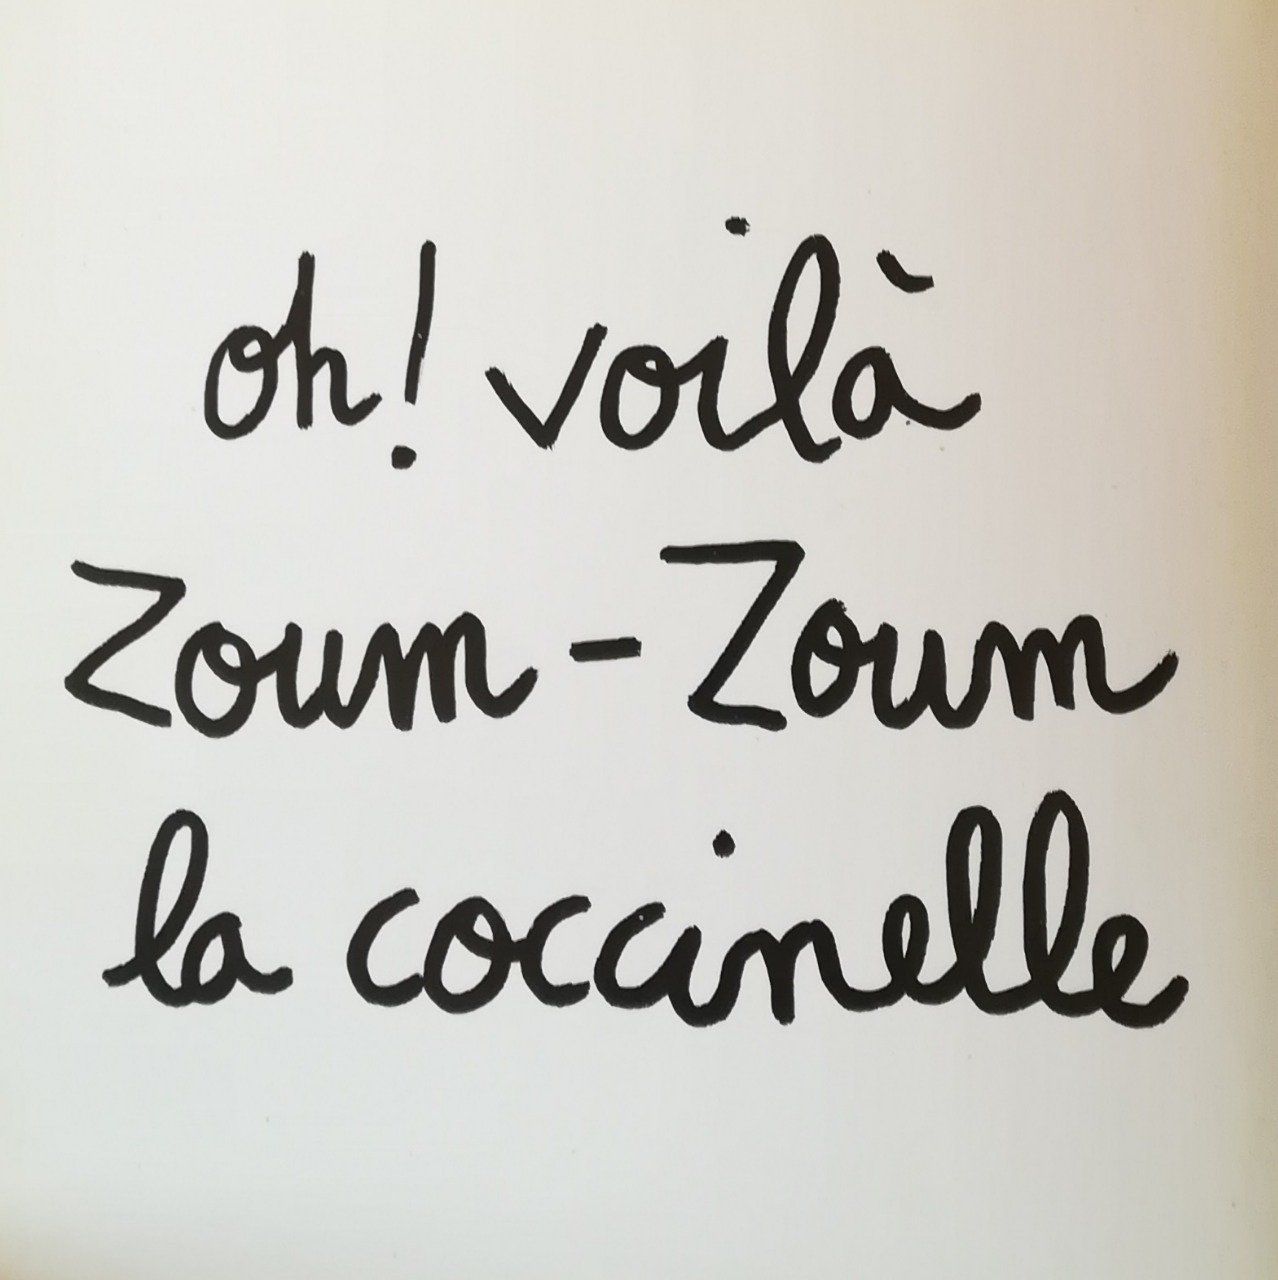 oh! voilà
Zoum - Zoum
la coccinelle